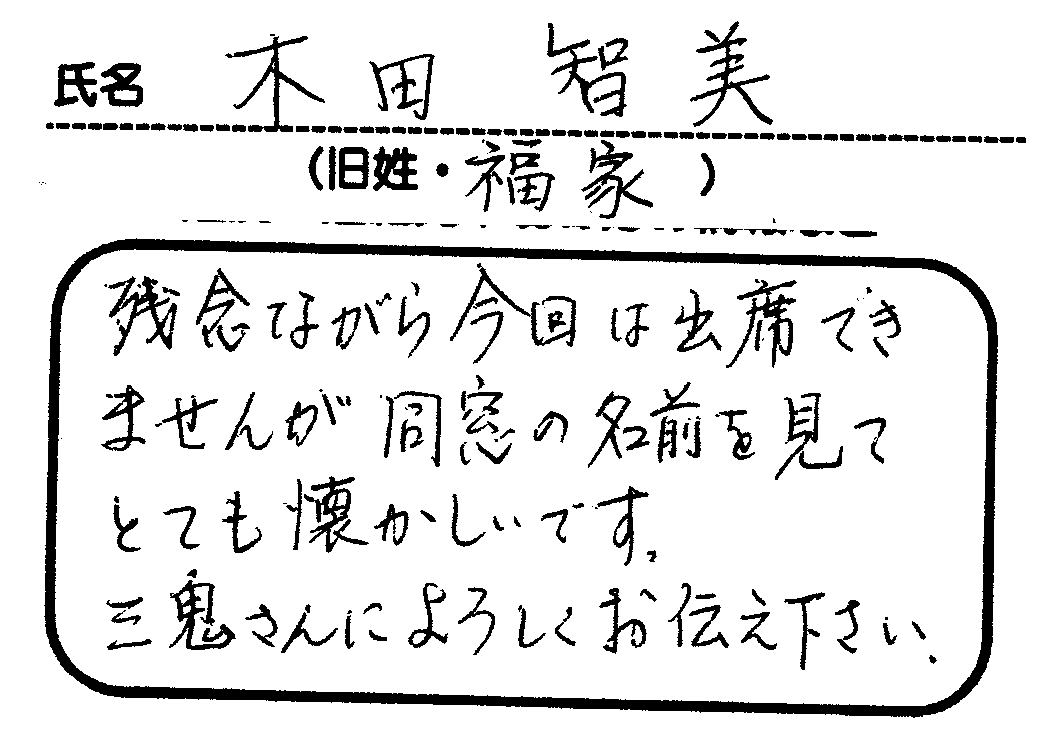 氏名 木田 智美
(旧姓・福家)
残念ながら今回は出席でき
ませんが同窓の名前を見て
とても懐かしいです。
三鬼さんによろしくお伝え下さい.